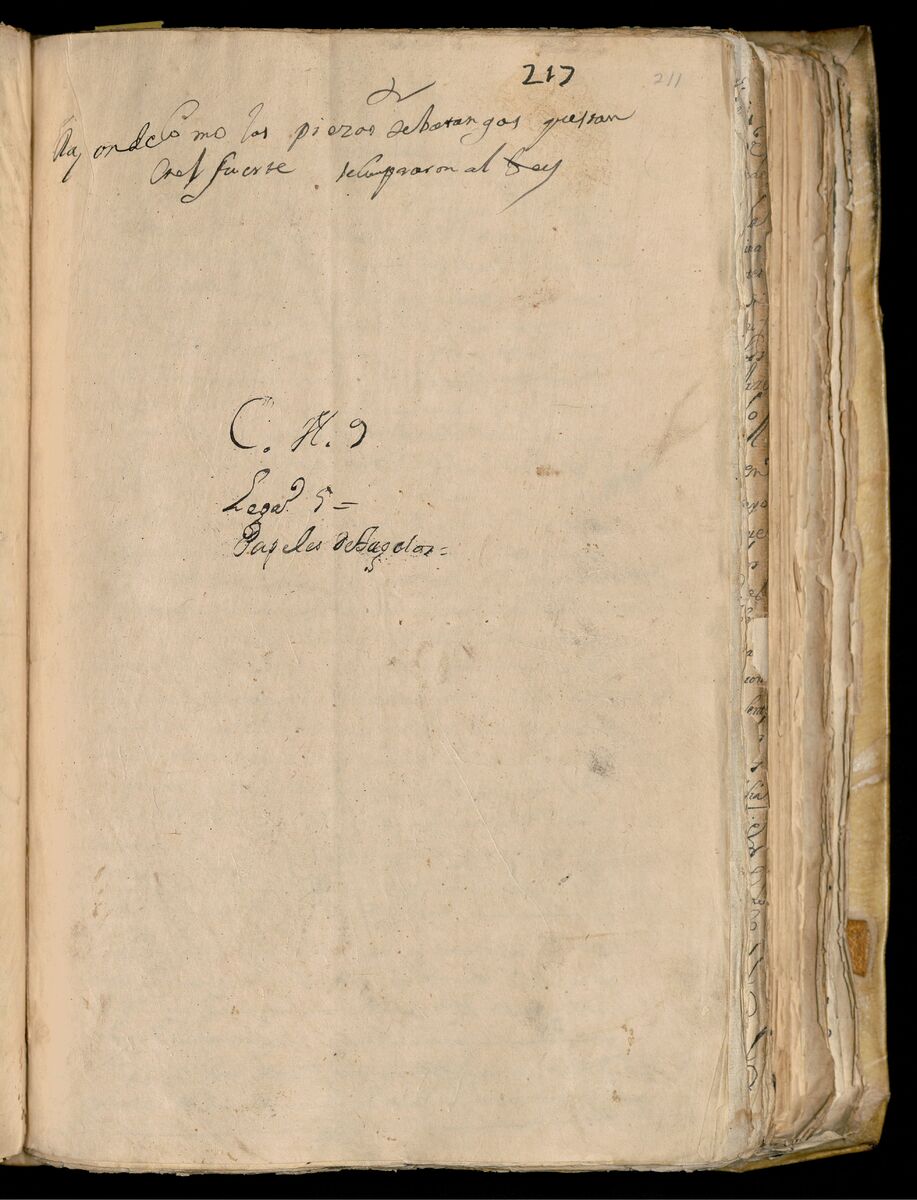 217 211
Razon de Como las piezas de batangas questan
en el fuerte se compraron al Rey
C. H. 9
Legaº. 5 =
Papeles de